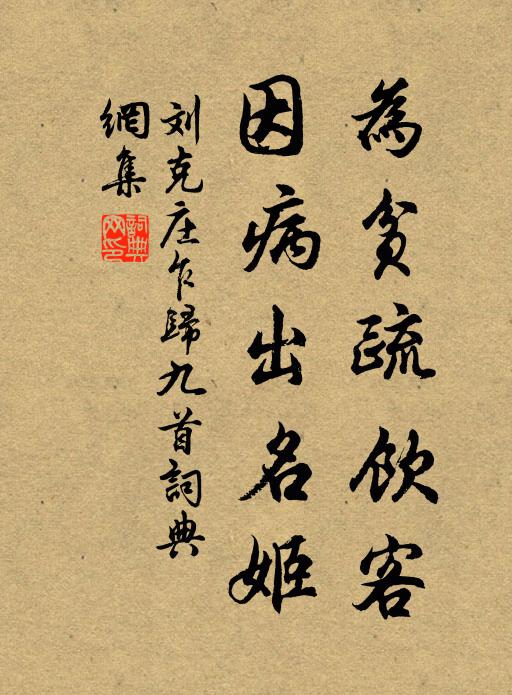 為貧疏飲客
因病出名姬
刘克庄乍歸九首詞典
網集
詞典网印